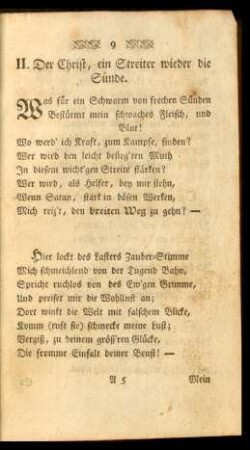 9
II. Der Christ, ein Streiter wieder die
Sünde.
Was für ein Schwarm von frechen Sünden
Bestürmt mein schwaches Fleisch, und
Blut!
Wo werd' ich Kraft, zum Kampfe, finden?
Wer wird den leicht besieg'ten Muth
In diesem wicht'gen Streite stärken?
Wer wird, als Helfer, bey mir stehn,
Wenn Satan, stark in bösen Werken,
Mich reiz't, den breiten Weg zu gehn? —
Hier lockt des Lasters Zauber-Stimme
Mich schmeichlend von der Tugend Bahn,
Spricht ruchlos von des Ew'gen Grimme,
Und preiset mir die Wohllust an;
Dort winkt die Welt mit falschem Blicke,
Komm (ruft sie) schmecke meine Lust;
Vergiß, zu deinem gröss'ren Glücke,
Die fromme Einfalt deiner Brust! —
A 5 Mein